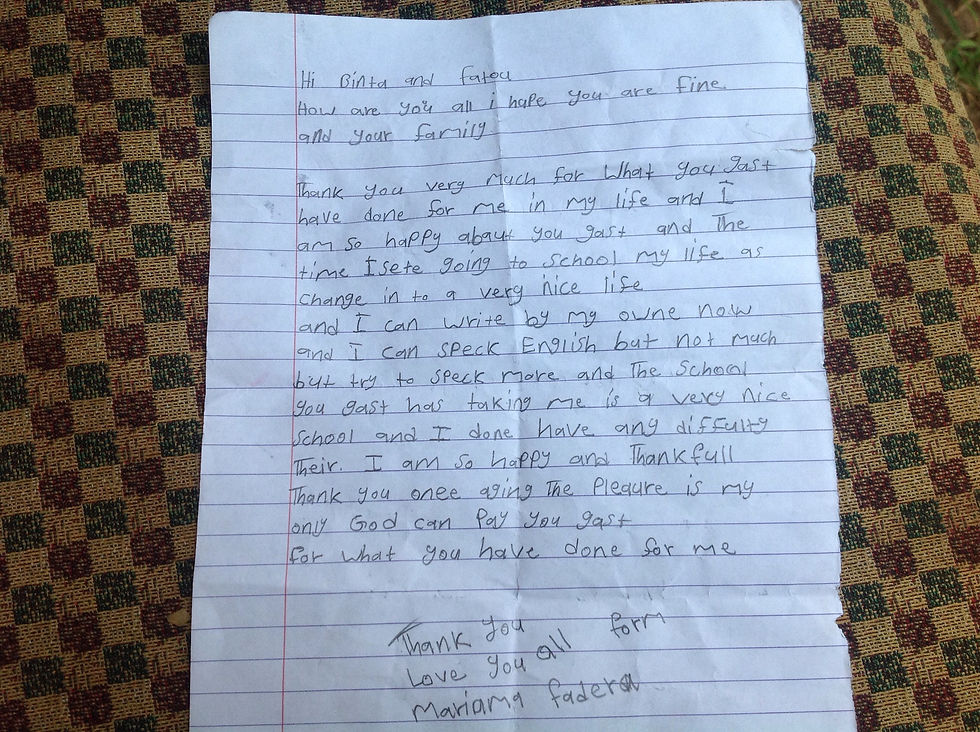 Hi Binta and fatou
How are you all i hape you are fine
and your family
Thank you very much for What you gast
have done for me in my life and I
am so happy abaut you gast and The
time I sete going to school my life as
change in to a very nice life
and I can write by my owne now
and I can speck English but not much
but try to speck more and The School
you gast has taking me is a very nice
school and I done have any diffulty
Their. I am so happy and Thankfull
Thank you onee aging The Pleaure is my
only God can Pay you gast
for what you have done for me
Thank you
Love you all form
Mariama fadera